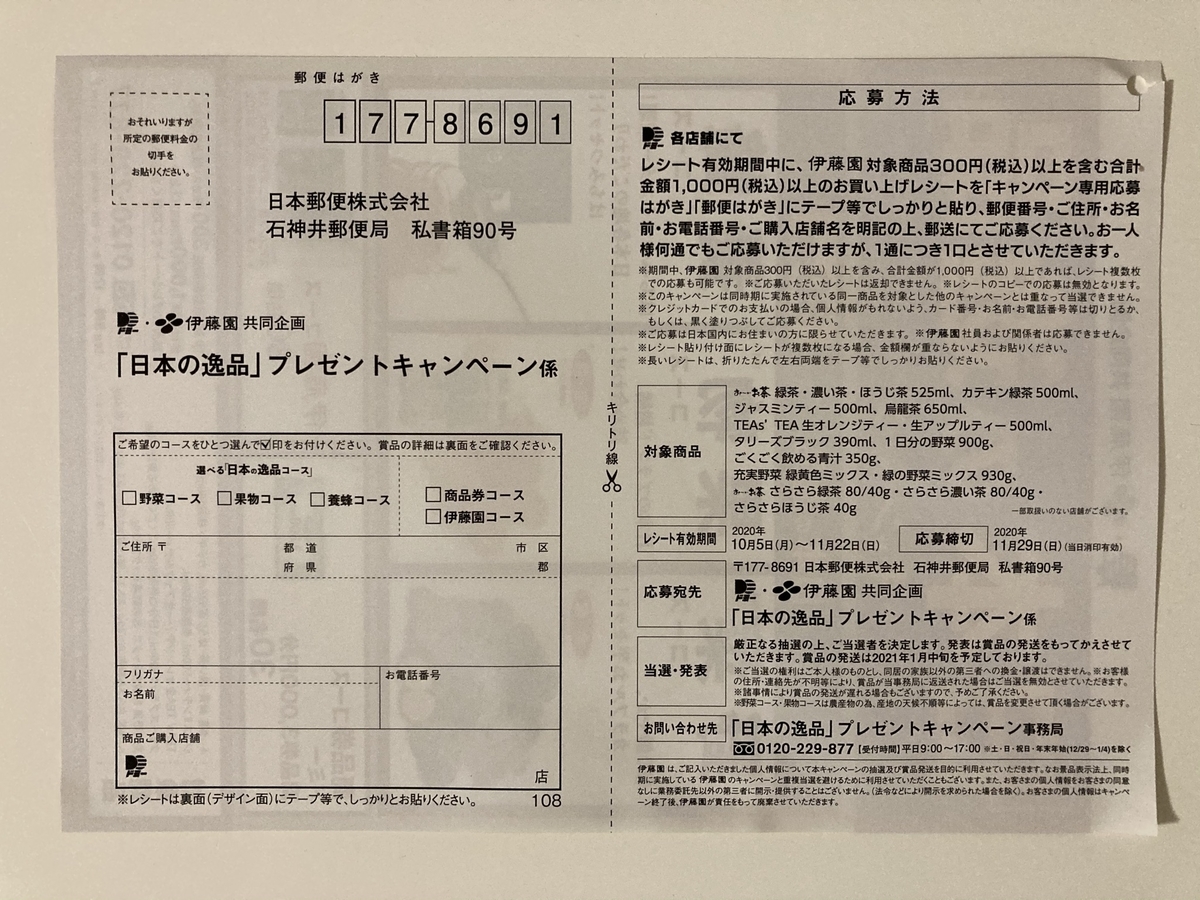 郵便はがき
おそれいりますが
所定の郵便料金の
切手を
お貼りください。
177-8691
日本郵便株式会社
石神井郵便局 私書箱90号
・伊藤園 共同企画
「日本の逸品」プレゼントキャンペーン係
ご希望のコースをひとつ選んで☑印をお付けください。賞品の詳細は裏面をご確認ください。
選べる「日本の逸品コース」
□野菜コース □果物コース □養蜂コース
□商品券コース
□伊藤園コース
ご住所 〒 都道 市区
府県 郡
フリガナ
お名前
お電話番号
商品ご購入店舗
店
※レシートは裏面(デザイン面)にテープ等で、しっかりとお貼りください。 108
キリトリ線
応募方法
各店舗にて
レシート有効期間中に、伊藤園 対象商品300円(税込)以上を含む合計
金額1,000円(税込)以上のお買い上げレシートを「キャンペーン専用応募
はがき」「郵便はがき」にテープ等でしっかりと貼り、郵便番号・ご住所・お名
前・お電話番号・ご購入店舗名を明記の上、郵送にてご応募ください。お一人
様何通でもご応募いただけますが、1通につき1口とさせていただきます。
※期間中、伊藤園 対象商品300円(税込)以上を含み、合計金額が1,000円(税込)以上であれば、レシート複数枚
での応募も可能です。※ご応募いただいたレシートは返却できません。※レシートのコピーでの応募は無効となります。
※このキャンペーンは同時期に実施されている同一商品を対象とした他のキャンペーンとは重なって当選できません。
※クレジットカードでのお支払いの場合、個人情報がもれないよう、カード番号・お名前・お電話番号等は切りとるか、
もしくは、黒く塗りつぶしてご応募ください。
※ご応募は日本国内にお住まいの方に限らせていただきます。※伊藤園社員および関係者は応募できません。
※レシート貼り付け面にレシートが複数枚になる場合、金額欄が重ならないようにお貼りください。
※長いレシートは、折りたたんで左右両端をテープ等でしっかりお貼りください。
対象商品
お〜いお茶 緑茶・濃い茶・ほうじ茶 525ml、カテキン緑茶 500ml、
ジャスミンティー 500ml、烏龍茶 650ml、
TEAs' TEA 生オレンジティー・生アップルティー 500ml、
タリーズブラック 390ml、1日分の野菜 900g、
ごくごく飲める青汁 350g、
充実野菜 緑黄色ミックス・緑の野菜ミックス 930g、
お〜いお茶 さらさら緑茶 80/40g・さらさら濃い茶 80/40g・
さらさらほうじ茶 40g
一部取扱いのない店舗がございます。
レシート有効期間
2020年
10月5日(月)〜11月22日(日)
応募締切
2020年
11月29日(日)(当日消印有効)
応募宛先
〒177-8691 日本郵便株式会社 石神井郵便局 私書箱90号
・伊藤園 共同企画
「日本の逸品」プレゼントキャンペーン係
当選・発表
厳正なる抽選の上、ご当選者を決定します。発表は賞品の発送をもってかえさせて
いただきます。賞品の発送は2021年1月中旬を予定しております。
※ご当選の権利はご本人様のものとし、同居の家族以外の第三者への換金・譲渡はできません。※お客様
の住所・連絡先が不明等により、賞品が当事務局に返送された場合はご当選を無効とさせていただきます。
※諸事情により賞品の発送が遅れる場合もございますので、予めご了承ください。
※野菜コース・果物コースは農産物の為、産地の天候不順等によっては、賞品を変更させて頂く場合がございます。
お問い合わせ先
「日本の逸品」プレゼントキャンペーン事務局
0120-229-877【受付時間】平日9:00〜17:00 ※土・日・祝日・年末年始(12/29〜1/4)を除く
伊藤園 は、ご記入いただきました個人情報について本キャンペーンの抽選及び賞品発送を目的に利用させていただきます。なお景品表示法上、同時
期に実施している 伊藤園 のキャンペーンと重複当選を避けるために利用させていただくこともございます。また、お客さまの個人情報をお客さまの同意
なしに業務委託先以外の第三者に開示・提供することはございません。(法令などにより開示を求められた場合を除く)。お客さまの個人情報はキャンペ
ーン終了後、伊藤園が責任をもって廃棄させていただきます。